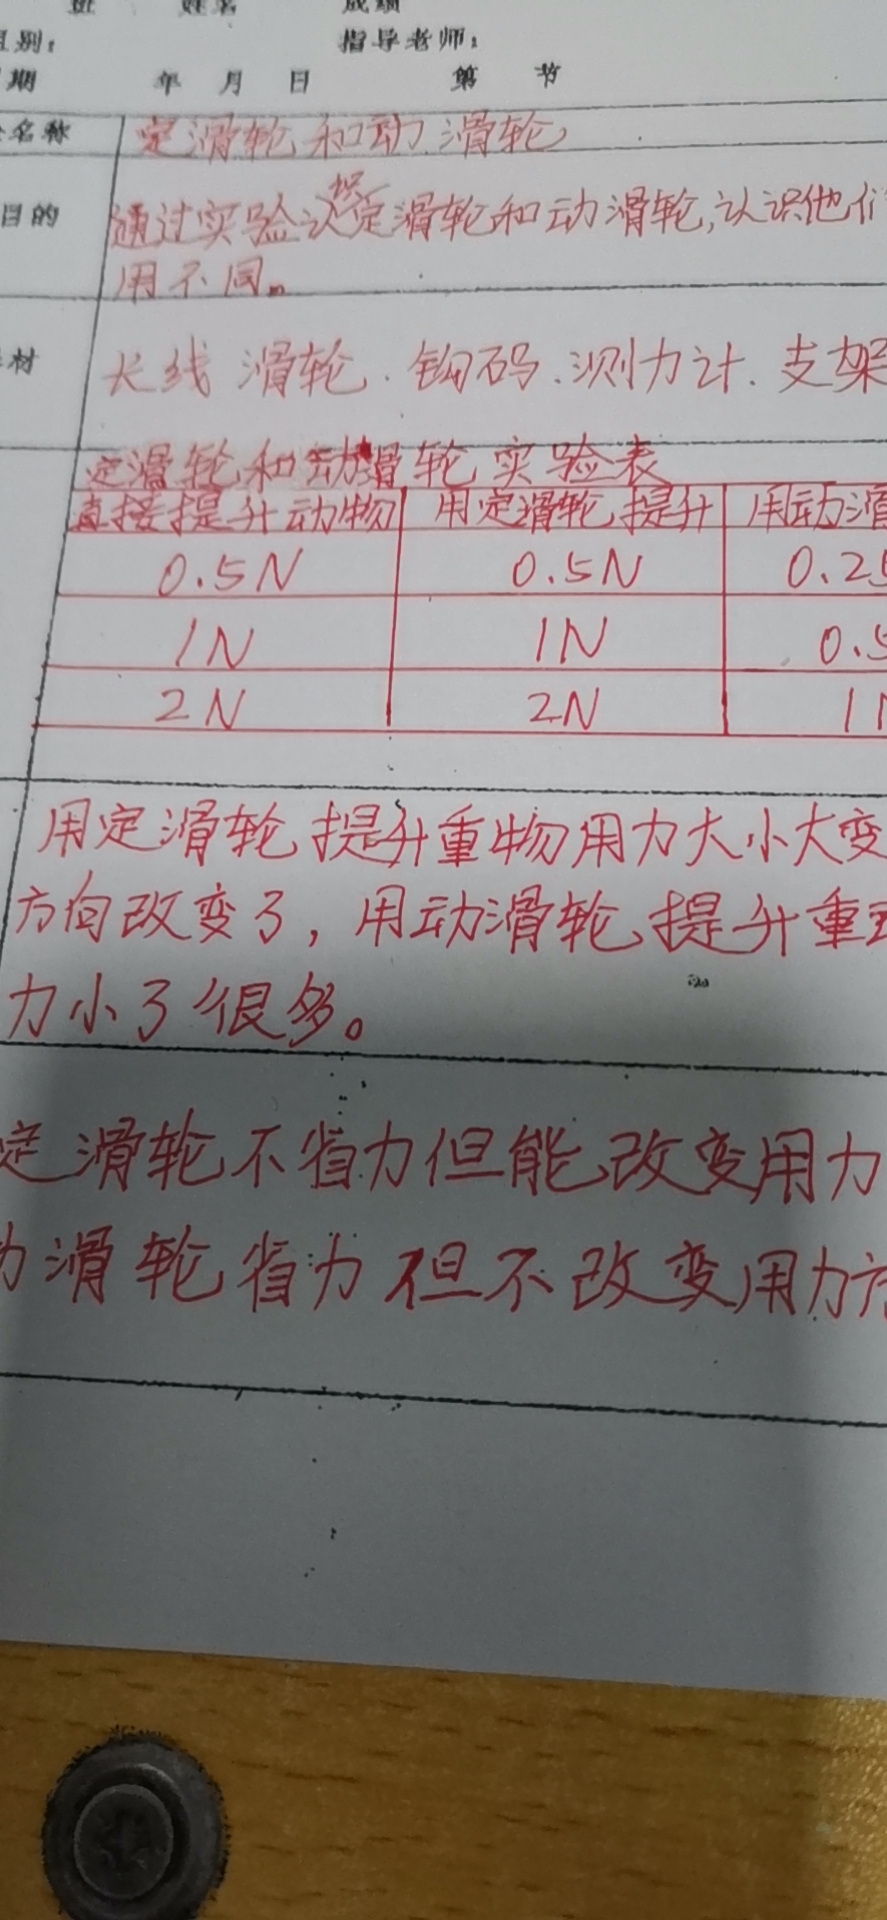 班 姓名 成绩
组别: 指导老师:
期 年 月 日 第 节
名称 定滑轮和动滑轮
目的 通过实验认识定滑轮和动滑轮,认识他们
用不同。
材 长线 滑轮.钩码.测力计.支架
定滑轮和动滑轮实验表
直接提升动物 用定滑轮提升 用动滑
0.5N 0.5N 0.25
1N 1N 0.5
2N 2N 1N
用定滑轮提升重物用力大小大变
方向改变了,用动滑轮提升重
力小了很多。
定滑轮不省力但能改变用力
动滑轮省力但不改变用力方